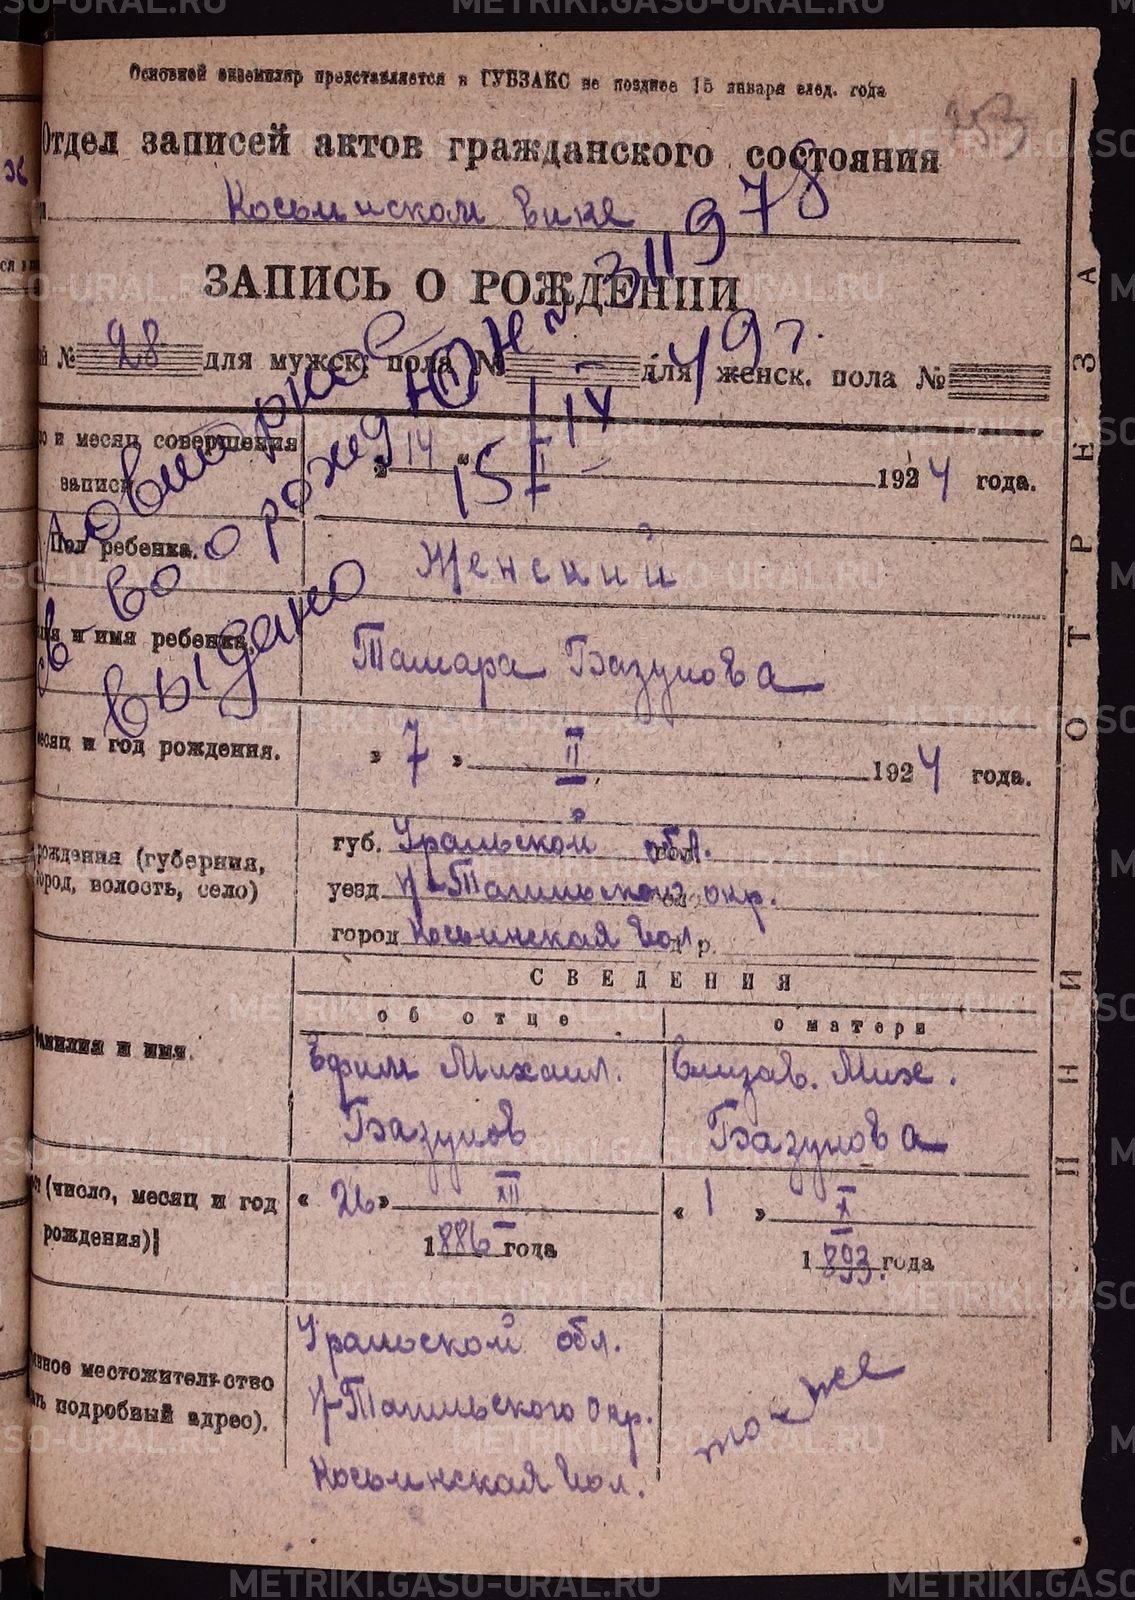 Основной экземпляр представляется в ГУБЗАКС не позднее 15 января след. года
253
Отдел записей актов гражданского состояния
Косьинском вике
ЗАПИСЬ О РОЖДЕНИИ
й № 28 для мужск. пола № для женск. пола №
Повторное
св-во о рожд
выдано
ЮН № 311978
15/IV 49 г.
о и месяц совершения записи
„ 14 “ II 1924 года.
Пол ребенка.
Женский
и имя ребенка.
Тамара Базунова
месяц и год рождения.
» 7 » II 1924 года.
рождения (губерния, город, волость, село)
губ. Уральской обл.
уезд Н-Тагильского окр.
город Косьинская Вол р.
СВЕДЕНИЯ
об отце
о матери
Фамилия и имя.
Ефим Михаил.
Базунов
Елизав. Мих.
Базунова
(число, месяц и год рождения)
« 26 » XII
1886 года
« 1 » X
1893 года
местожительство
подробный адрес).
Уральской обл.
Н-Тагильского окр.
Косьинская Вол.
то-же
ЛИНИЯ ОТРЕЗА
METRIKI.GASO-URAL.RU